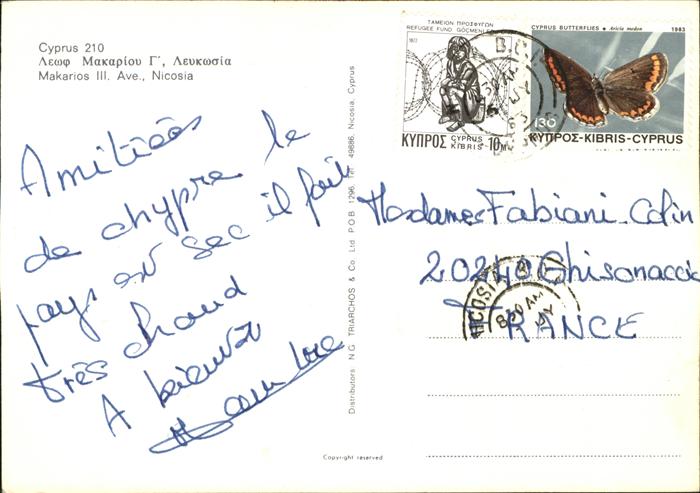 Cyprus 210
Λεωφ Μακαρίου Γ', Λευκωσία
Makarios III. Ave., Nicosia
Amitiées
de chypre le
pays est sec il fait
très chaud
A bientôt
Distributors N G TRIARCHOS & Co. Ltd P O B 1296, Tel 49886, Nicosia, Cyprus
Copyright reserved
ΤΑΜΕΙΟΝ ΠΡΟΣΦΥΓΩΝ
REFUGEE FUND GÖÇMENLER
1977
ΚΥΠΡΟΣ CYPRUS KIBRIS 10M
CYPRUS BUTTERFLIES • Aricia medon 1983
130
ΚΥΠΡΟΣ-KIBRIS-CYPRUS
Mesdames Fabiani Colin
20240 Ghisonaccia
FRANCE
NICOSIA
830 AM